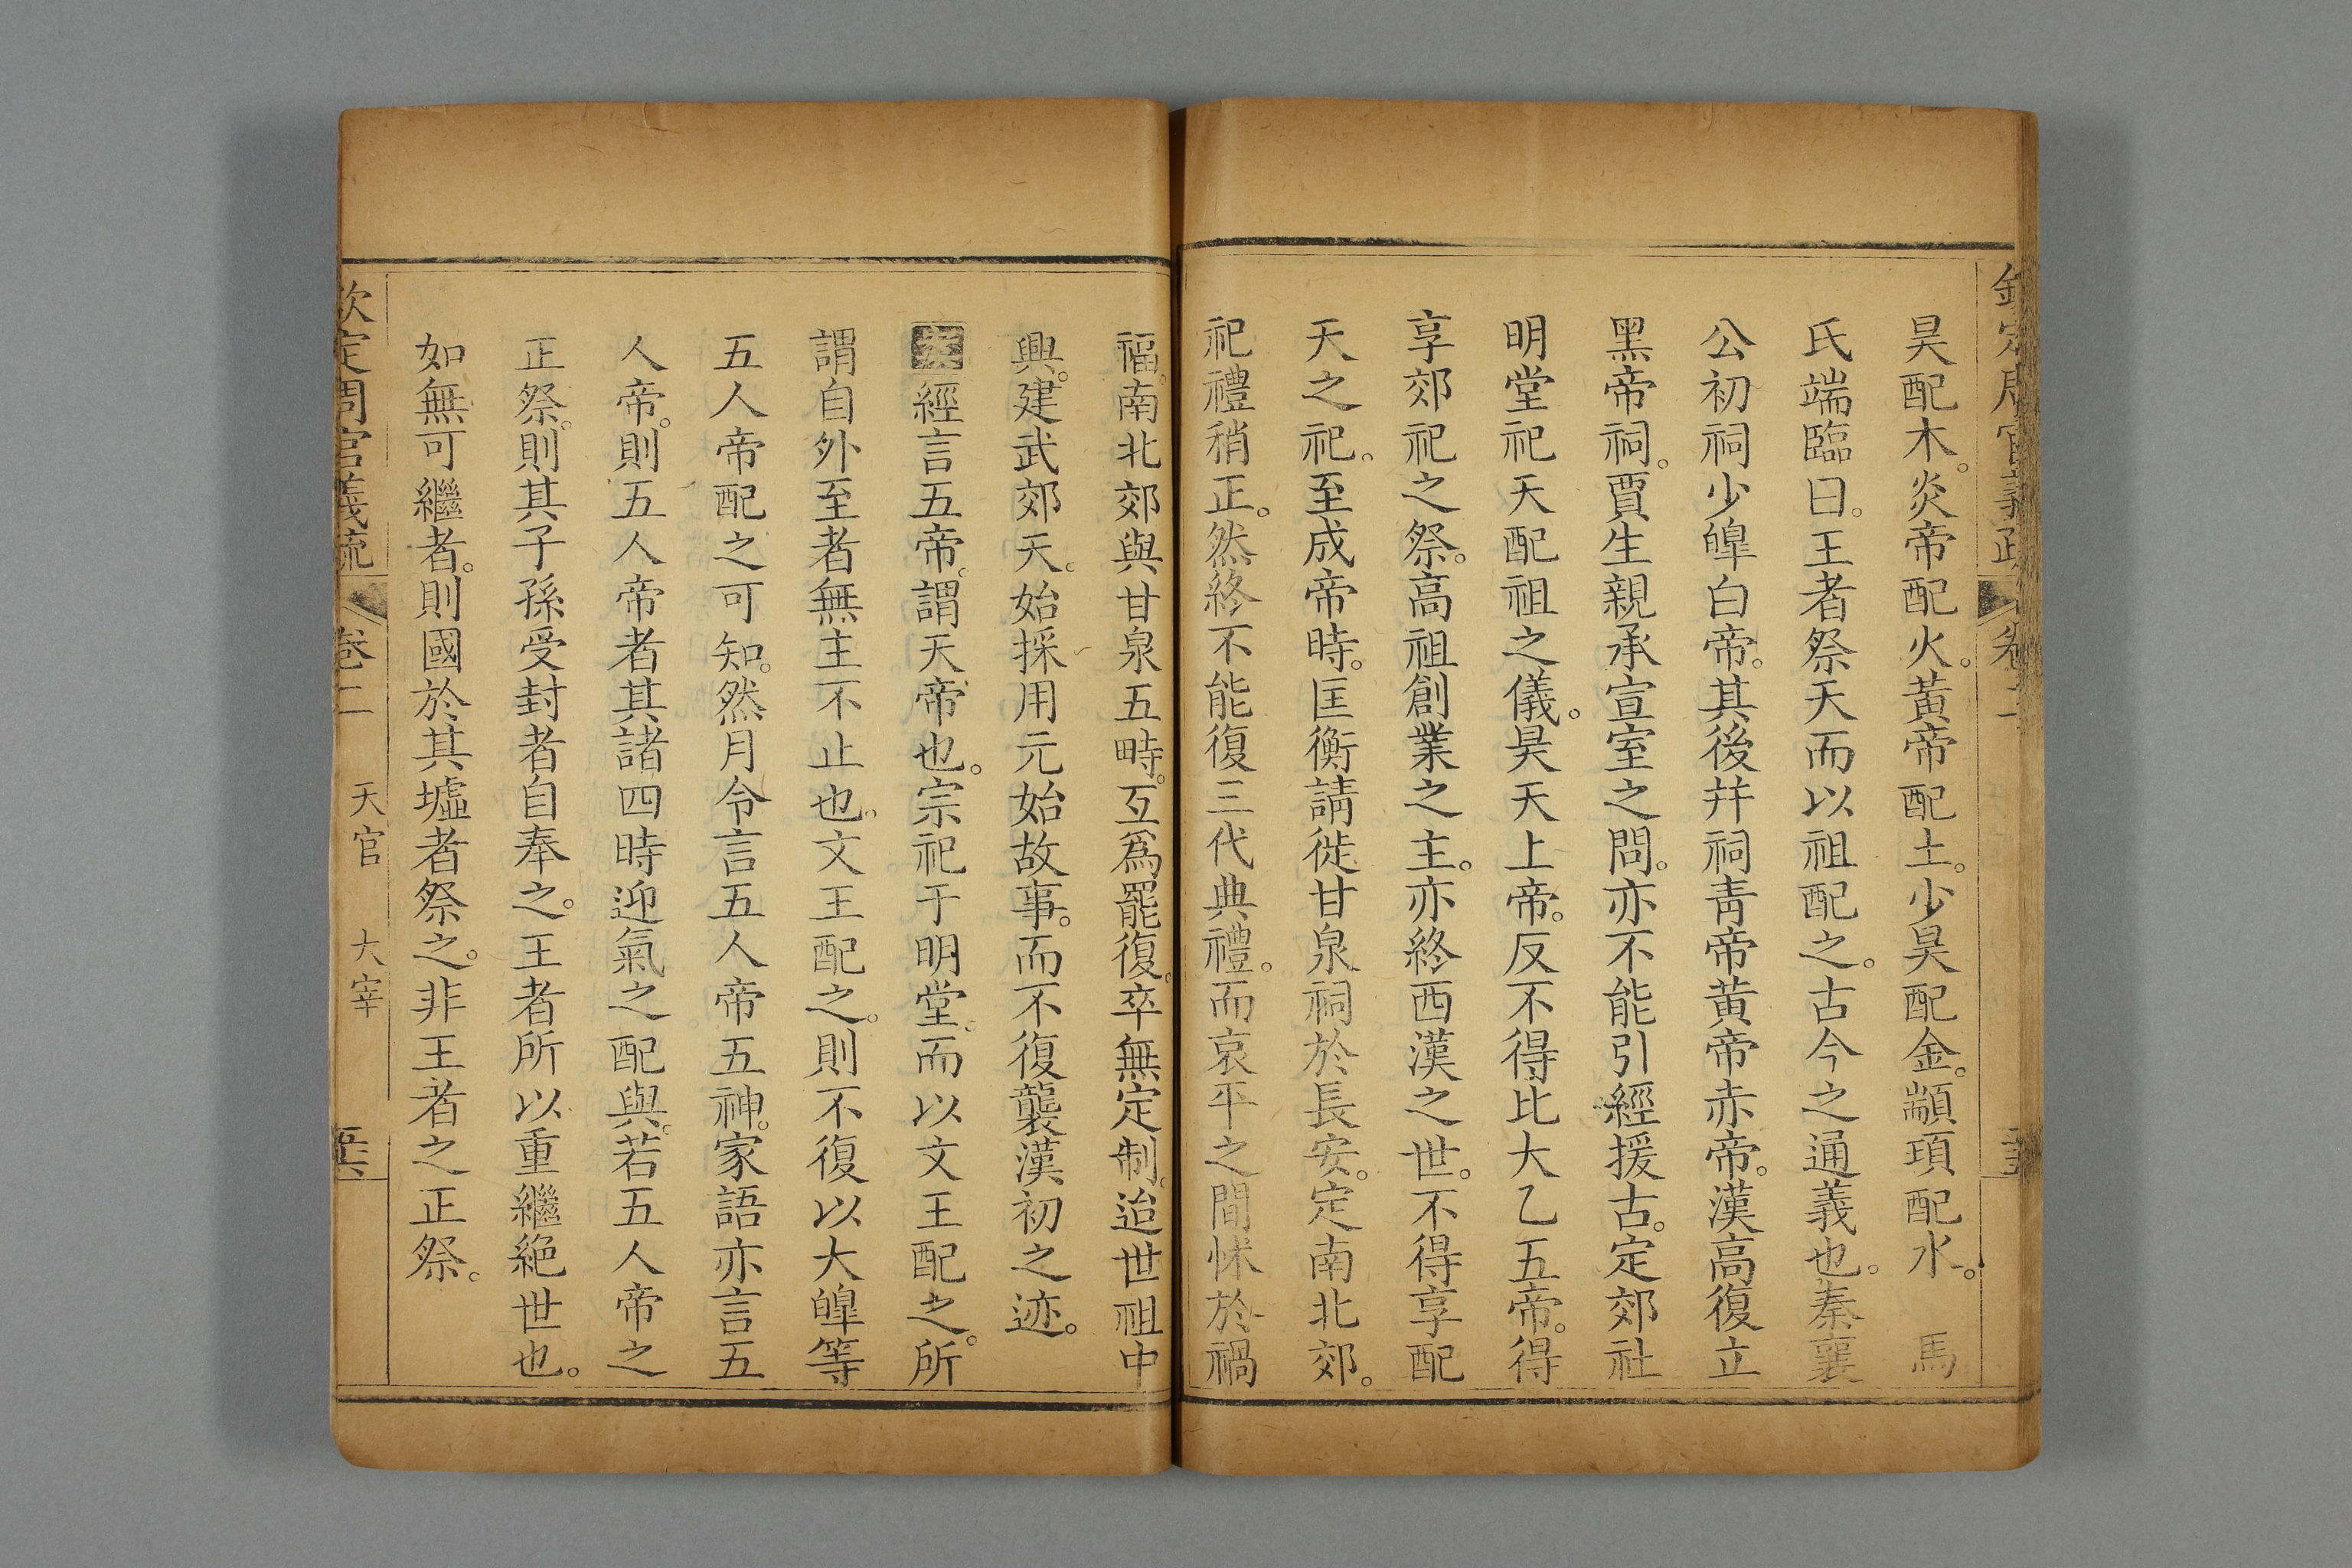 欽定周官義疏 卷二
昊配木。炎帝配火。黃帝配土。少昊配金。顓頊配水。 馬
氏端臨曰。王者祭天而以祖配之。古今之通義也。秦襄
公初祠少皥白帝。其後幷祠靑帝黃帝赤帝。漢高復立
黑帝祠。賈生親承宣室之問。亦不能引經援古。定郊社
明堂祀天配祖之儀。昊天上帝。反不得比大乙五帝。得
享郊祀之祭。高祖創業之主。亦終西漢之世。不得享配
天之祀。至成帝時。匡衡請徙甘泉祠於長安。定南北郊。
祀禮稍正。然終不能復三代典禮。而哀平之間怵於禍
福。南北郊與甘泉五畤。互爲罷復。卒無定制。迨世祖中
興。建武郊天。始採用元始故事。而不復襲漢初之迹。
案經言五帝。謂天帝也。宗祀于明堂。而以文王配之。所
謂自外至者無主不止也。文王配之。則不復以大皥等
五人帝配之可知。然月令言五人帝五神。家語亦言五
人帝。則五人帝者其諸四時迎氣之配與。若五人帝之
正祭。則其子孫受封者自奉之。王者所以重繼絕世也。
如無可繼者。則國於其墟者祭之。非王者之正祭。
欽定周官義疏 卷二 天官 大宰